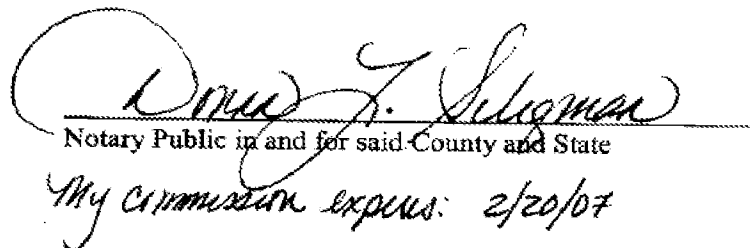 Donna L. Seligman
Notary Public in and for said County and State
My commission expires: 2/20/07